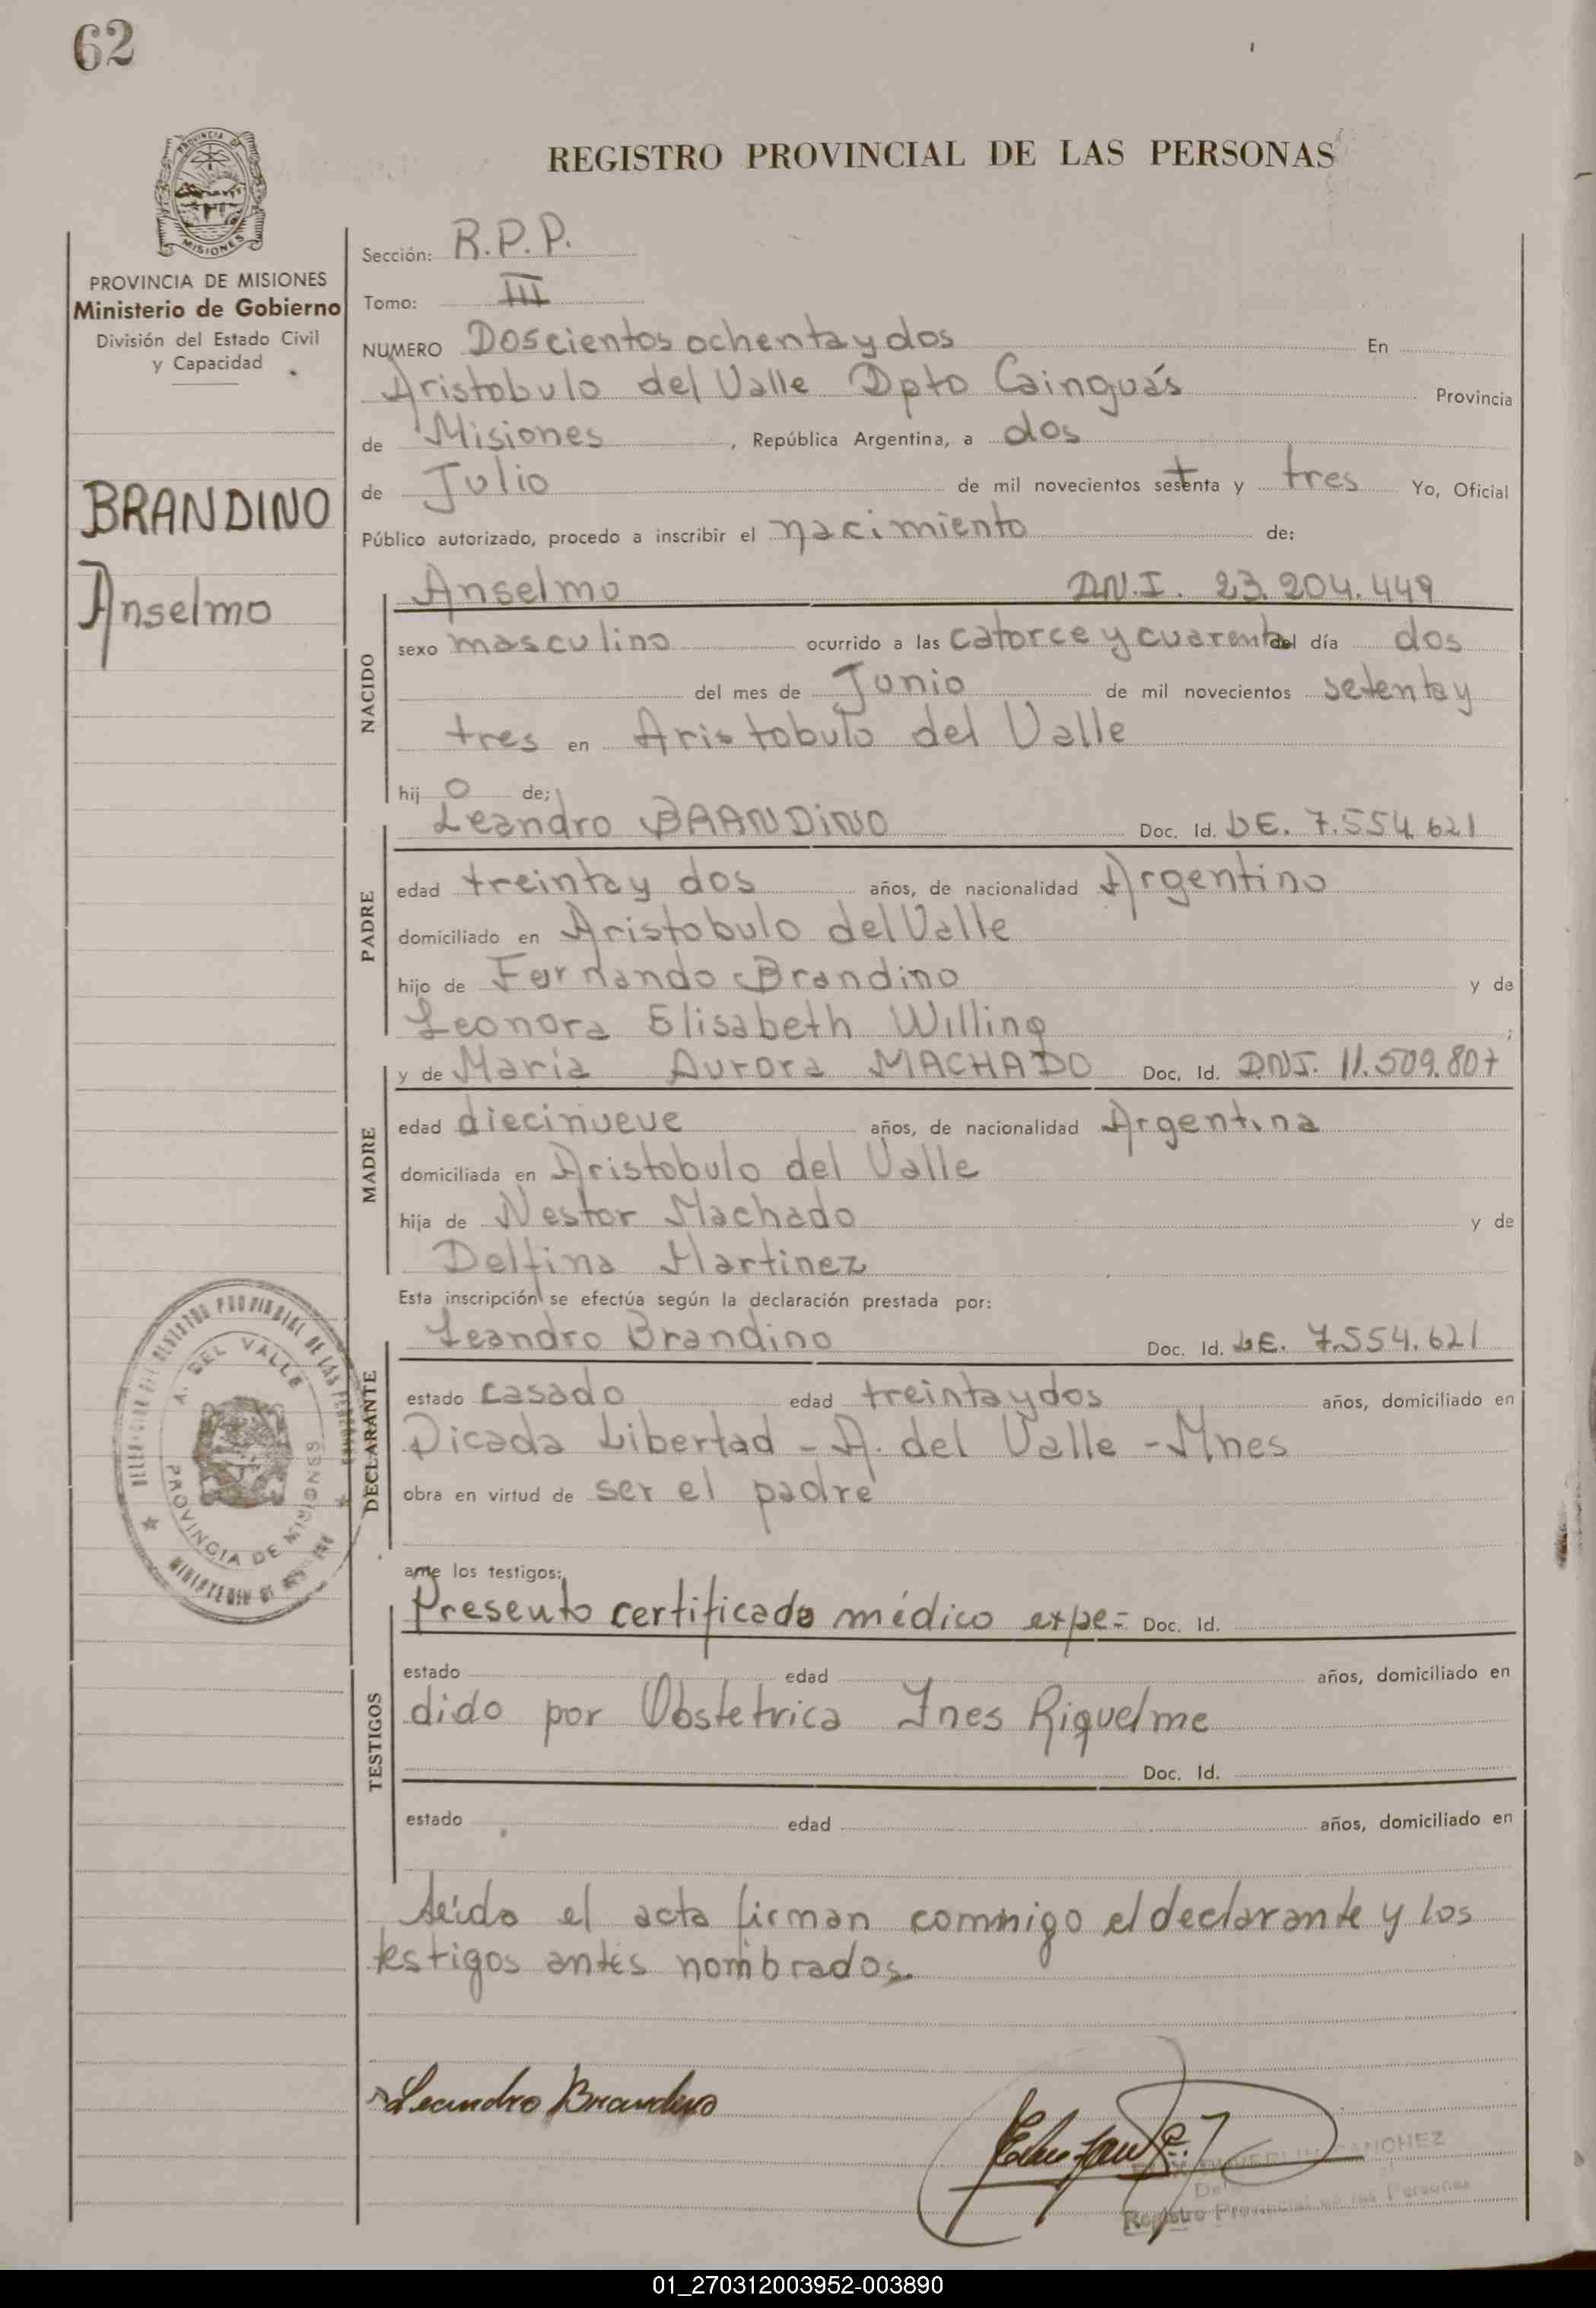 62
PROVINCIA DE
MISIONES
REGISTRO PROVINCIAL DE LAS PERSONAS
PROVINCIA DE MISIONES
Ministerio de Gobierno
División del Estado Civil
y Capacidad
BRANDINO
Anselmo
Sección: R.P.P.
Tomo: III
NUMERO Doscientos ochenta y dos En
Aristobulo del Valle Dpto Cainguás Provincia
de Misiones, República Argentina, a dos
de Julio de mil novecientos setenta y tres Yo, Oficial
Público autorizado, procedo a inscribir el nacimiento de:
NACIDO
Anselmo D.N.I. 23.204.449
sexo masculino ocurrido a las catorce y cuarenta del día dos
del mes de Junio de mil novecientos setenta y
tres en Aristobulo del Valle
hij o de;
PADRE
Leandro BRANDINO Doc. Id. LE. 7.554.621
edad treinta y dos años, de nacionalidad Argentino
domiciliado en Aristobulo del Valle
hijo de Fernando Brandino y de
Leonora Elisabeth Willing ;
MADRE
y de Maria Aurora MACHADO Doc. Id. DNI. 11.509.807
edad diecinueve años, de nacionalidad Argentina
domiciliada en Aristobulo del Valle
hija de Nestor Machado y de
Delfina Martinez
Esta inscripción se efectúa según la declaración prestada por:
DECLARANTE
Leandro Brandino Doc. Id. LE. 7.554.621
estado casado edad treinta y dos años, domiciliado en
Picada Libertad - A. del Valle - Mnes
obra en virtud de ser el padre
REGISTRO PROVINCIAL DE LAS PERSONAS
A. DEL VALLE
PROVINCIA DE MISIONES
ante los testigos:
TESTIGOS
Presento certificado médico expe= Doc. Id.
estado edad años, domiciliado en
dido por Obstetrica Ines Riquelme
Doc. Id.
estado edad años, domiciliado en
Leída el acta firman commigo el declarante y los
testigos antes nombrados.
Leandro Brandino
SANCHEZ
Registro Provincial de las Personas
01_270312003952-003890